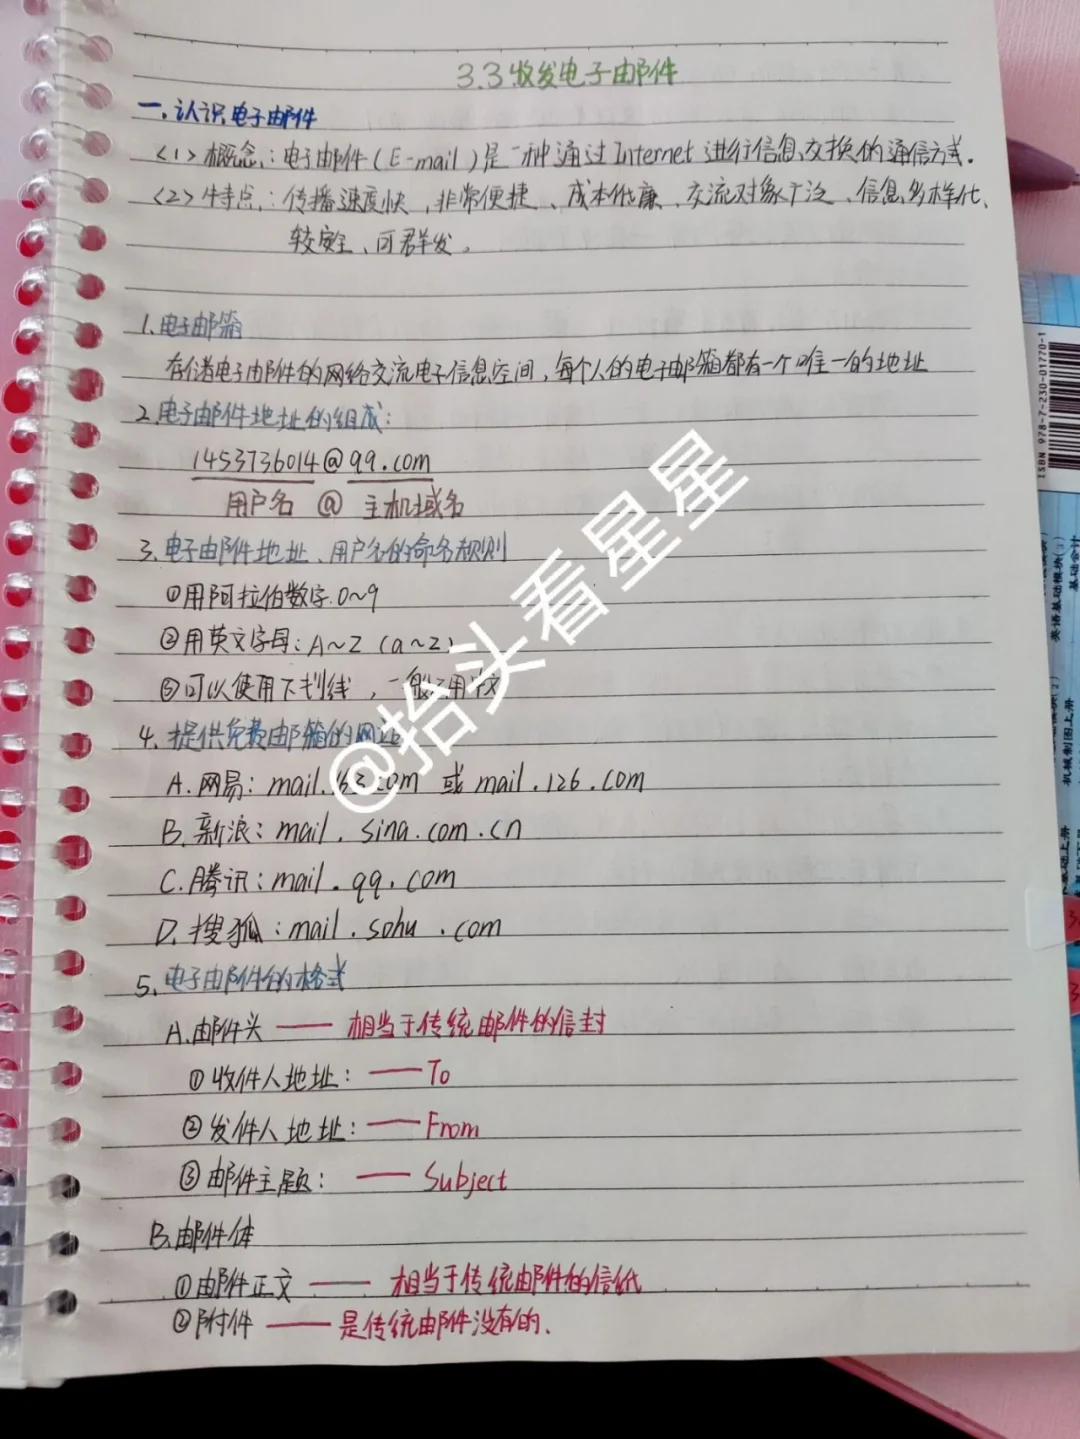 3.3收发电子邮件
一.认识电子邮件
<1>概念:电子邮件(E-mail)是一种通过Internet进行信息交换的通信方式.
<2>特点:传播速度快、非常便捷、成本低廉、交流对象广泛、信息多样化、
较安全、可群发。
1.电子邮箱
存储电子邮件的网络交流电子信息空间,每个人的电子邮箱都有一个唯一的地址
2.电子邮件地址的组成:
1453736014@qq.com
用户名 @ 主机域名
3.电子邮件地址、用户名的命名规则
①用阿拉伯数字.0~9
②用英文字母:A~Z(a~z)
③可以使用下划线,一般用中文
4.提供免费邮箱的网站
A.网易:mail.163.com 或 mail.126.com
B.新浪:mail.sina.com.cn
C.腾讯:mail.qq.com
D.搜狐:mail.sohu.com
5.电子邮件的格式
A.邮件头 —— 相当于传统邮件的信封
①收件人地址: —— To
②发件人地址: —— From
③邮件主题: —— Subject
B.邮件体
①邮件正文 —— 相当于传统邮件的信纸
②附件 —— 是传统邮件没有的、
@抬头看星星
ISBN 978-7-230-01770-1
英语基础模块(1)
基础会计
机械制图上册